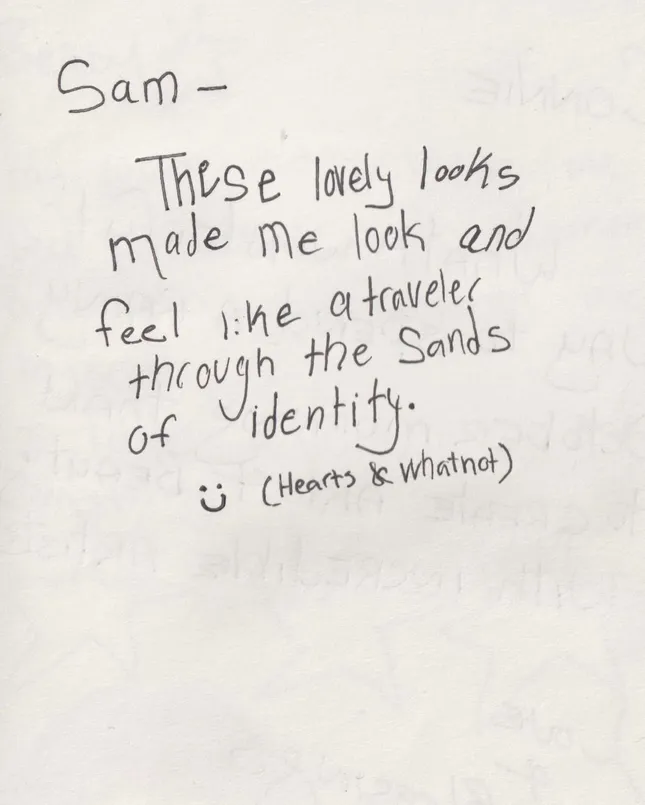 Sam —
These lovely looks
made me look and
feel like a traveler
through the Sands
of identity.
(Hearts & Whatnot)